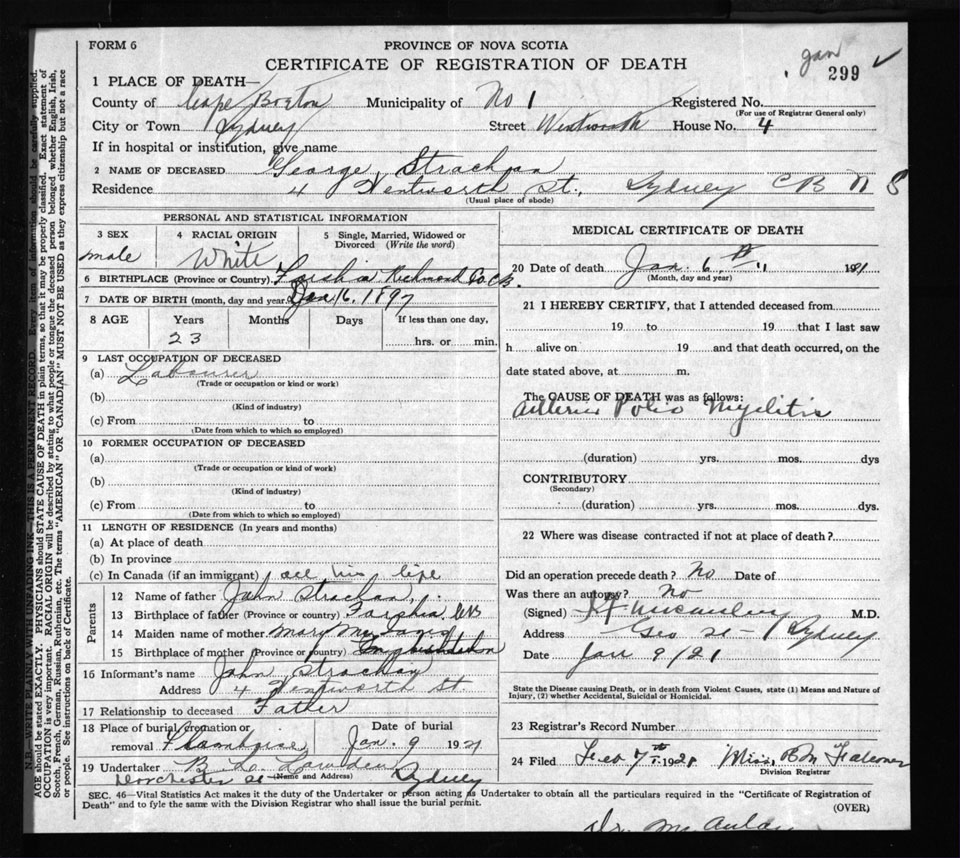 FORM 6
PROVINCE OF NOVA SCOTIA
CERTIFICATE OF REGISTRATION OF DEATH
Jan
299
1 PLACE OF DEATH—
County of Cape Breton Municipality of No 1 Registered No.
(For use of Registrar General only)
City or Town Sydney Street Wentworth House No. 4
If in hospital or institution, give name
2 NAME OF DECEASED George Strachan
Residence 4 Wentworth St., Sydney C B N S
(Usual place of abode)
PERSONAL AND STATISTICAL INFORMATION
3 SEX
male
4 RACIAL ORIGIN
White
5 Single, Married, Widowed or
Divorced (Write the word)
6 BIRTHPLACE (Province or Country) Richmond Co C.B.
7 DATE OF BIRTH (month, day and year) 16, 1897
8 AGE Years Months Days If less than one day,
23 hrs. or min.
9 LAST OCCUPATION OF DECEASED
(a) Labourer
(Trade or occupation or kind or work)
(b)
(Kind of industry)
(c) From to
(Date from which to which so employed)
10 FORMER OCCUPATION OF DECEASED
(a)
(Trade or occupation or kind of work)
(b)
(Kind of industry)
(c) From to
(Date from which to which so employed)
11 LENGTH OF RESIDENCE (In years and months)
(a) At place of death
(b) In province
(c) In Canada (if an immigrant) all his life
Parents
12 Name of father John Strachan
13 Birthplace of father (Province or country) CB
14 Maiden name of mother Mary
15 Birthplace of mother (Province or country)
16 Informant's name John Strachan
Address 4 Wentworth St.
17 Relationship to deceased Father
18 Place of burial, cremation or
removal
Date of burial
Jan. 9 1921
19 Undertaker B. L.
(Name and Address)
Dorchester St Sydney
MEDICAL CERTIFICATE OF DEATH
20 Date of death Jan. 6th 1921
(Month, day and year)
21 I HEREBY CERTIFY, that I attended deceased from
19 to 19 that I last saw
h alive on 19 and that death occurred, on the
date stated above, at m.
The CAUSE OF DEATH was as follows:
Polio Myelitis
(duration) yrs. mos. dys
CONTRIBUTORY
(Secondary)
(duration) yrs. mos. dys.
22 Where was disease contracted if not at place of death?
Did an operation precede death? No Date of
Was there an autopsy? No
(Signed) M.D.
Address Geo St— Sydney
Date Jan 9/21
State the Disease causing Death, or in death from Violent Causes, state (1) Means and Nature of
Injury, (2) whether Accidental, Suicidal or Homicidal.
23 Registrar's Record Number
24 Filed Feb 7th 1921 Miss B M Falconer
Division Registrar
SEC. 46—Vital Statistics Act makes it the duty of the Undertaker or person acting as Undertaker to obtain all the particulars required in the "Certificate of Registration of
Death" and to fyle the same with the Division Registrar who shall issue the burial permit.
(OVER)
Dr.
N.B.—WRITE PLAINLY WITH UNFADING INK—THIS IS A PERMANENT RECORD. Every item of information should be carefully supplied.
AGE should be stated EXACTLY. PHYSICIANS should STATE CAUSE OF DEATH in plain terms, so that it may be properly classified. Exact statement of
OCCUPATION is very important. RACIAL ORIGIN will be described by stating to what people or tongue the deceased person belonged whether English, Irish,
Scotch, French, German, Russian, Ruthenian, etc. The terms "AMERICAN" OR "CANADIAN" MUST NOT BE USED as they express citizenship but not a race
or people. See instructions on back of Certificate.